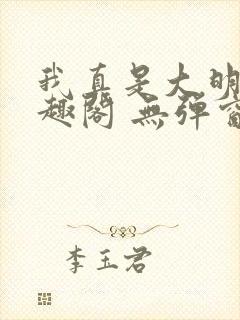 我真是大明
趣阁 無彈窗
李玉君